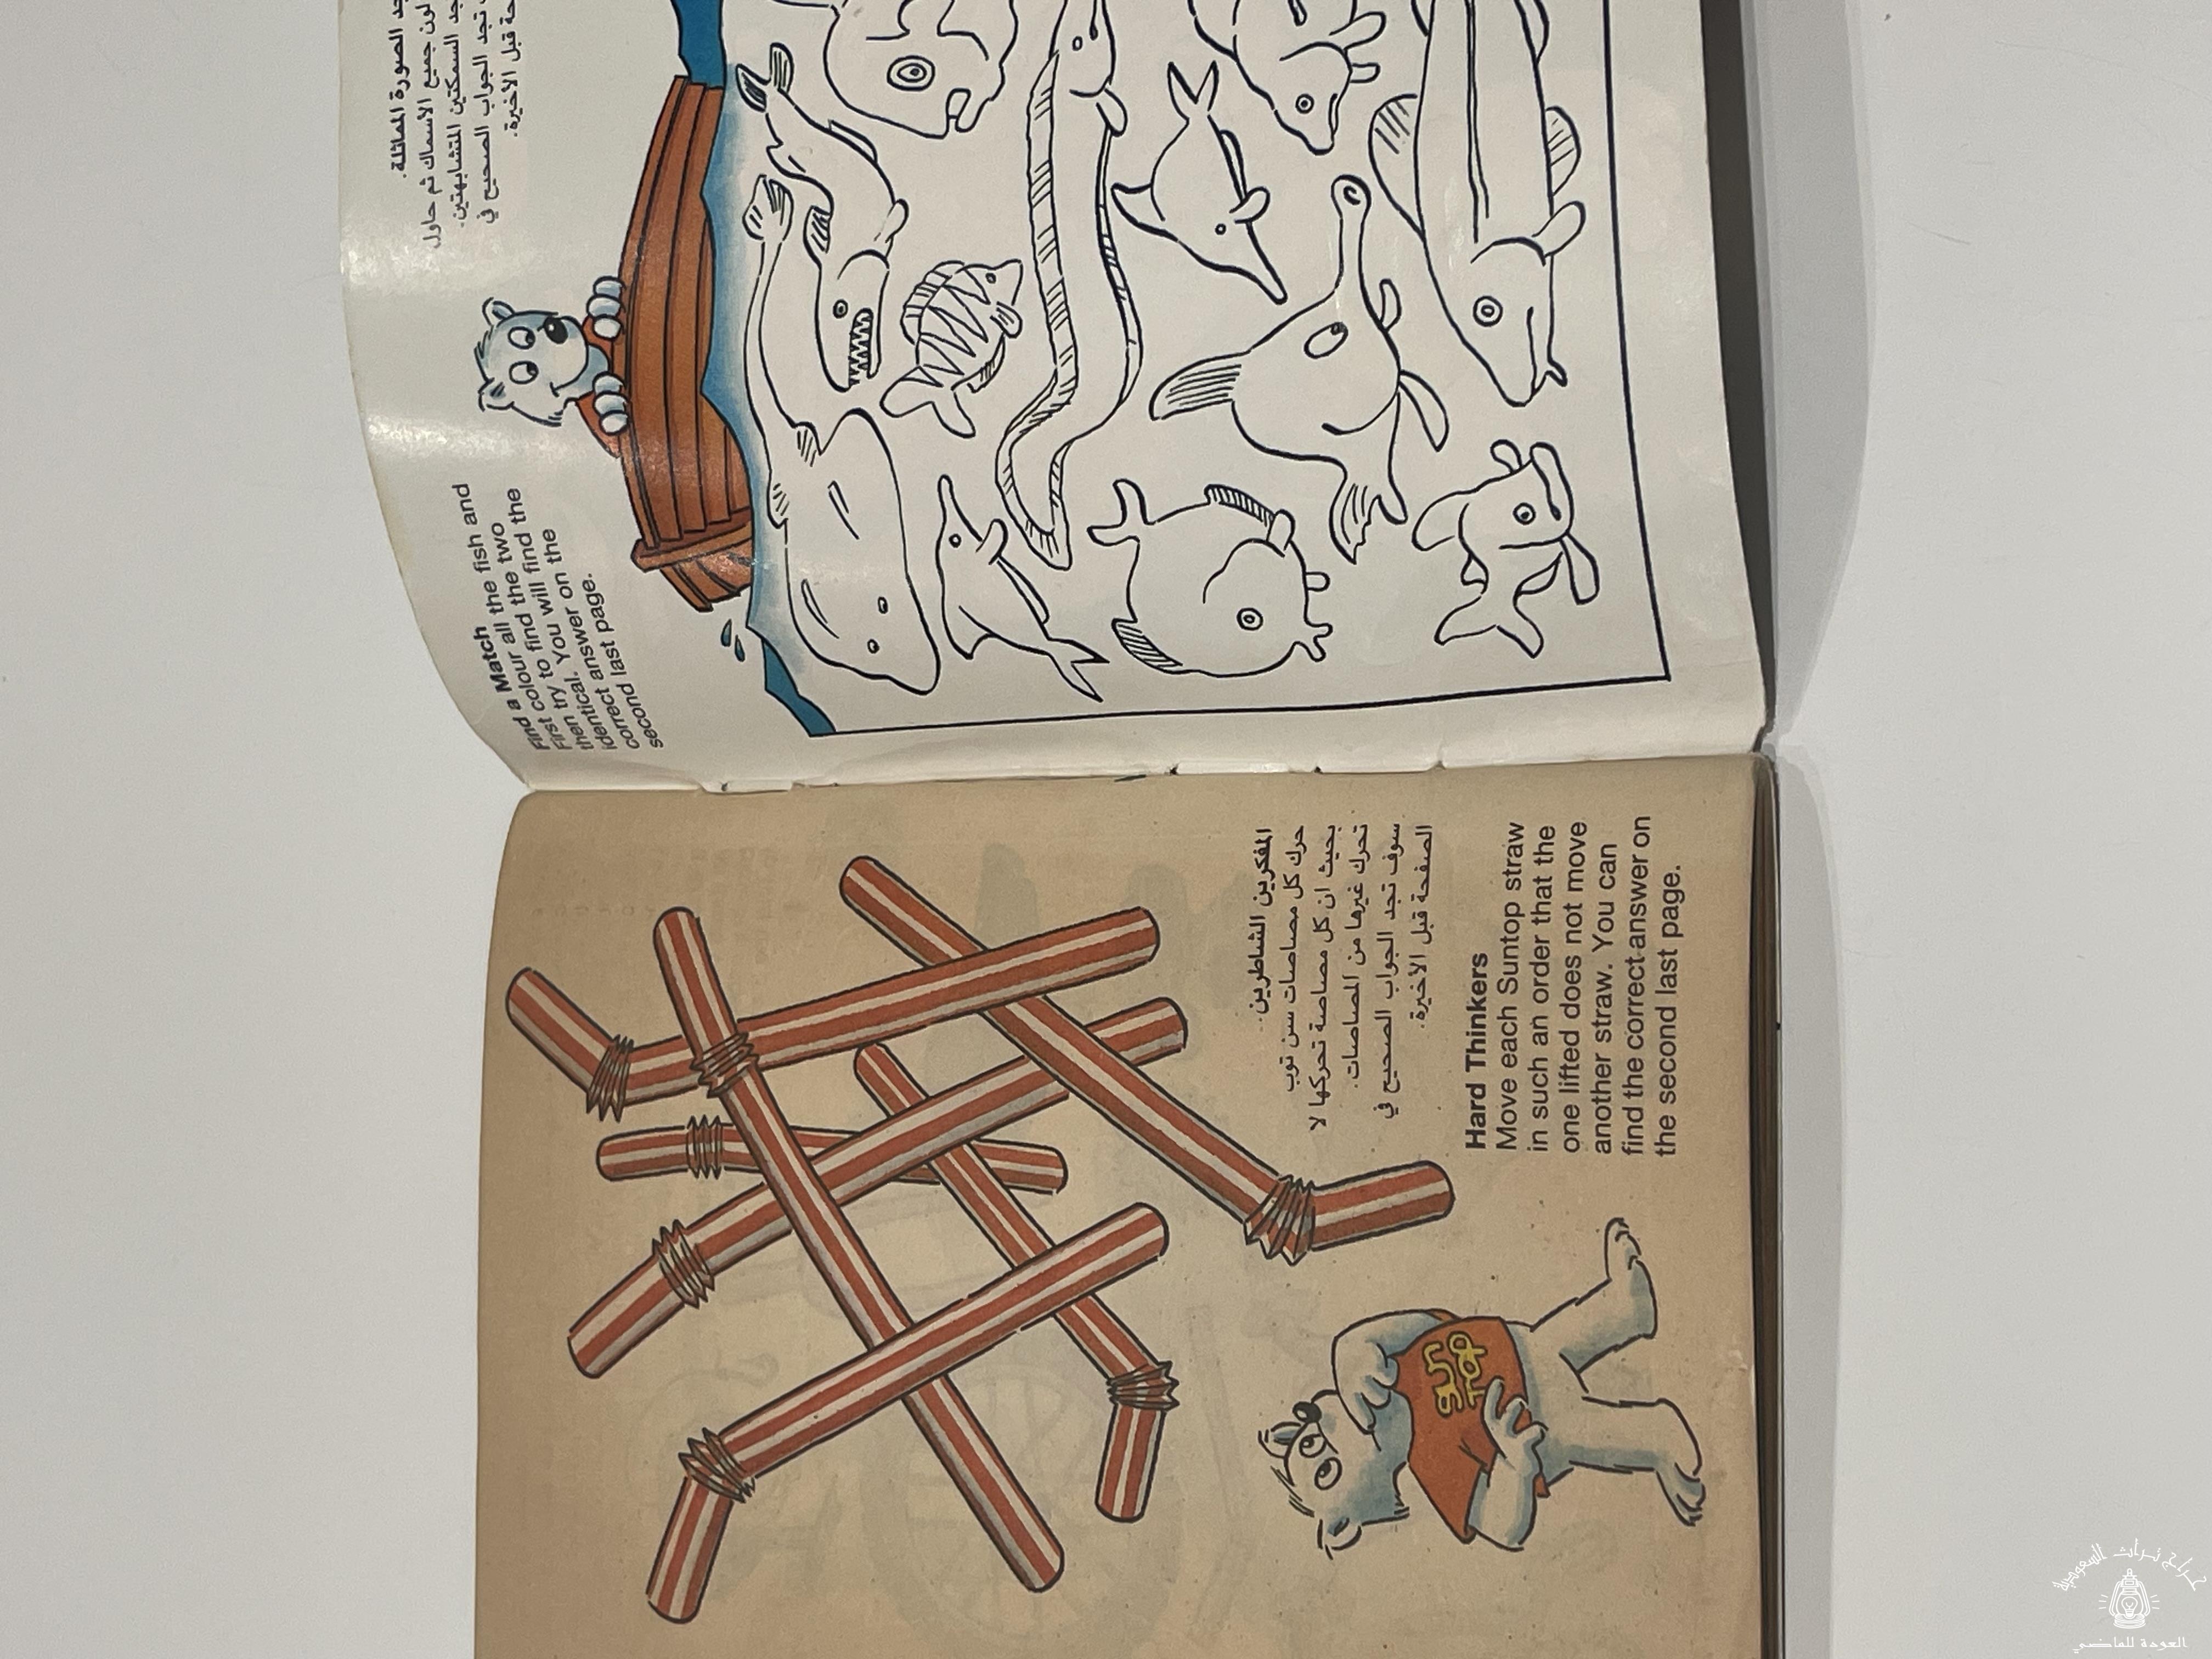 Find a Match
First colour all the fish and
then try to find the two
identical. You will find the
correct answer on the
second last page.
الصورة المماثلة.
لون جميع الاسماك ثم حاول
السمكتين المتشابهتين.
تجد الجواب الصحيح في
قبل الاخيرة.
المفكرين الشاطرين ..
حرك كل مصاصات سن توب
بحيث ان كل مصاصة تحركها لا
تحرك غيرها من المصاصات.
سوف تجد الجواب الصحيح في
الصفحة قبل الاخيرة.
Hard Thinkers
Move each Suntop straw
in such an order that the
one lifted does not move
another straw. You can
find the correct answer on
the second last page.
SUN
TOP
حراج تراث السعودية
العودة للماضي